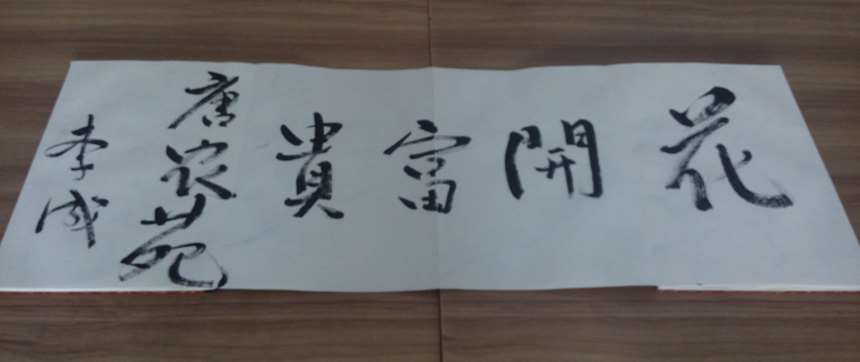 花開富貴
唐苑
李成